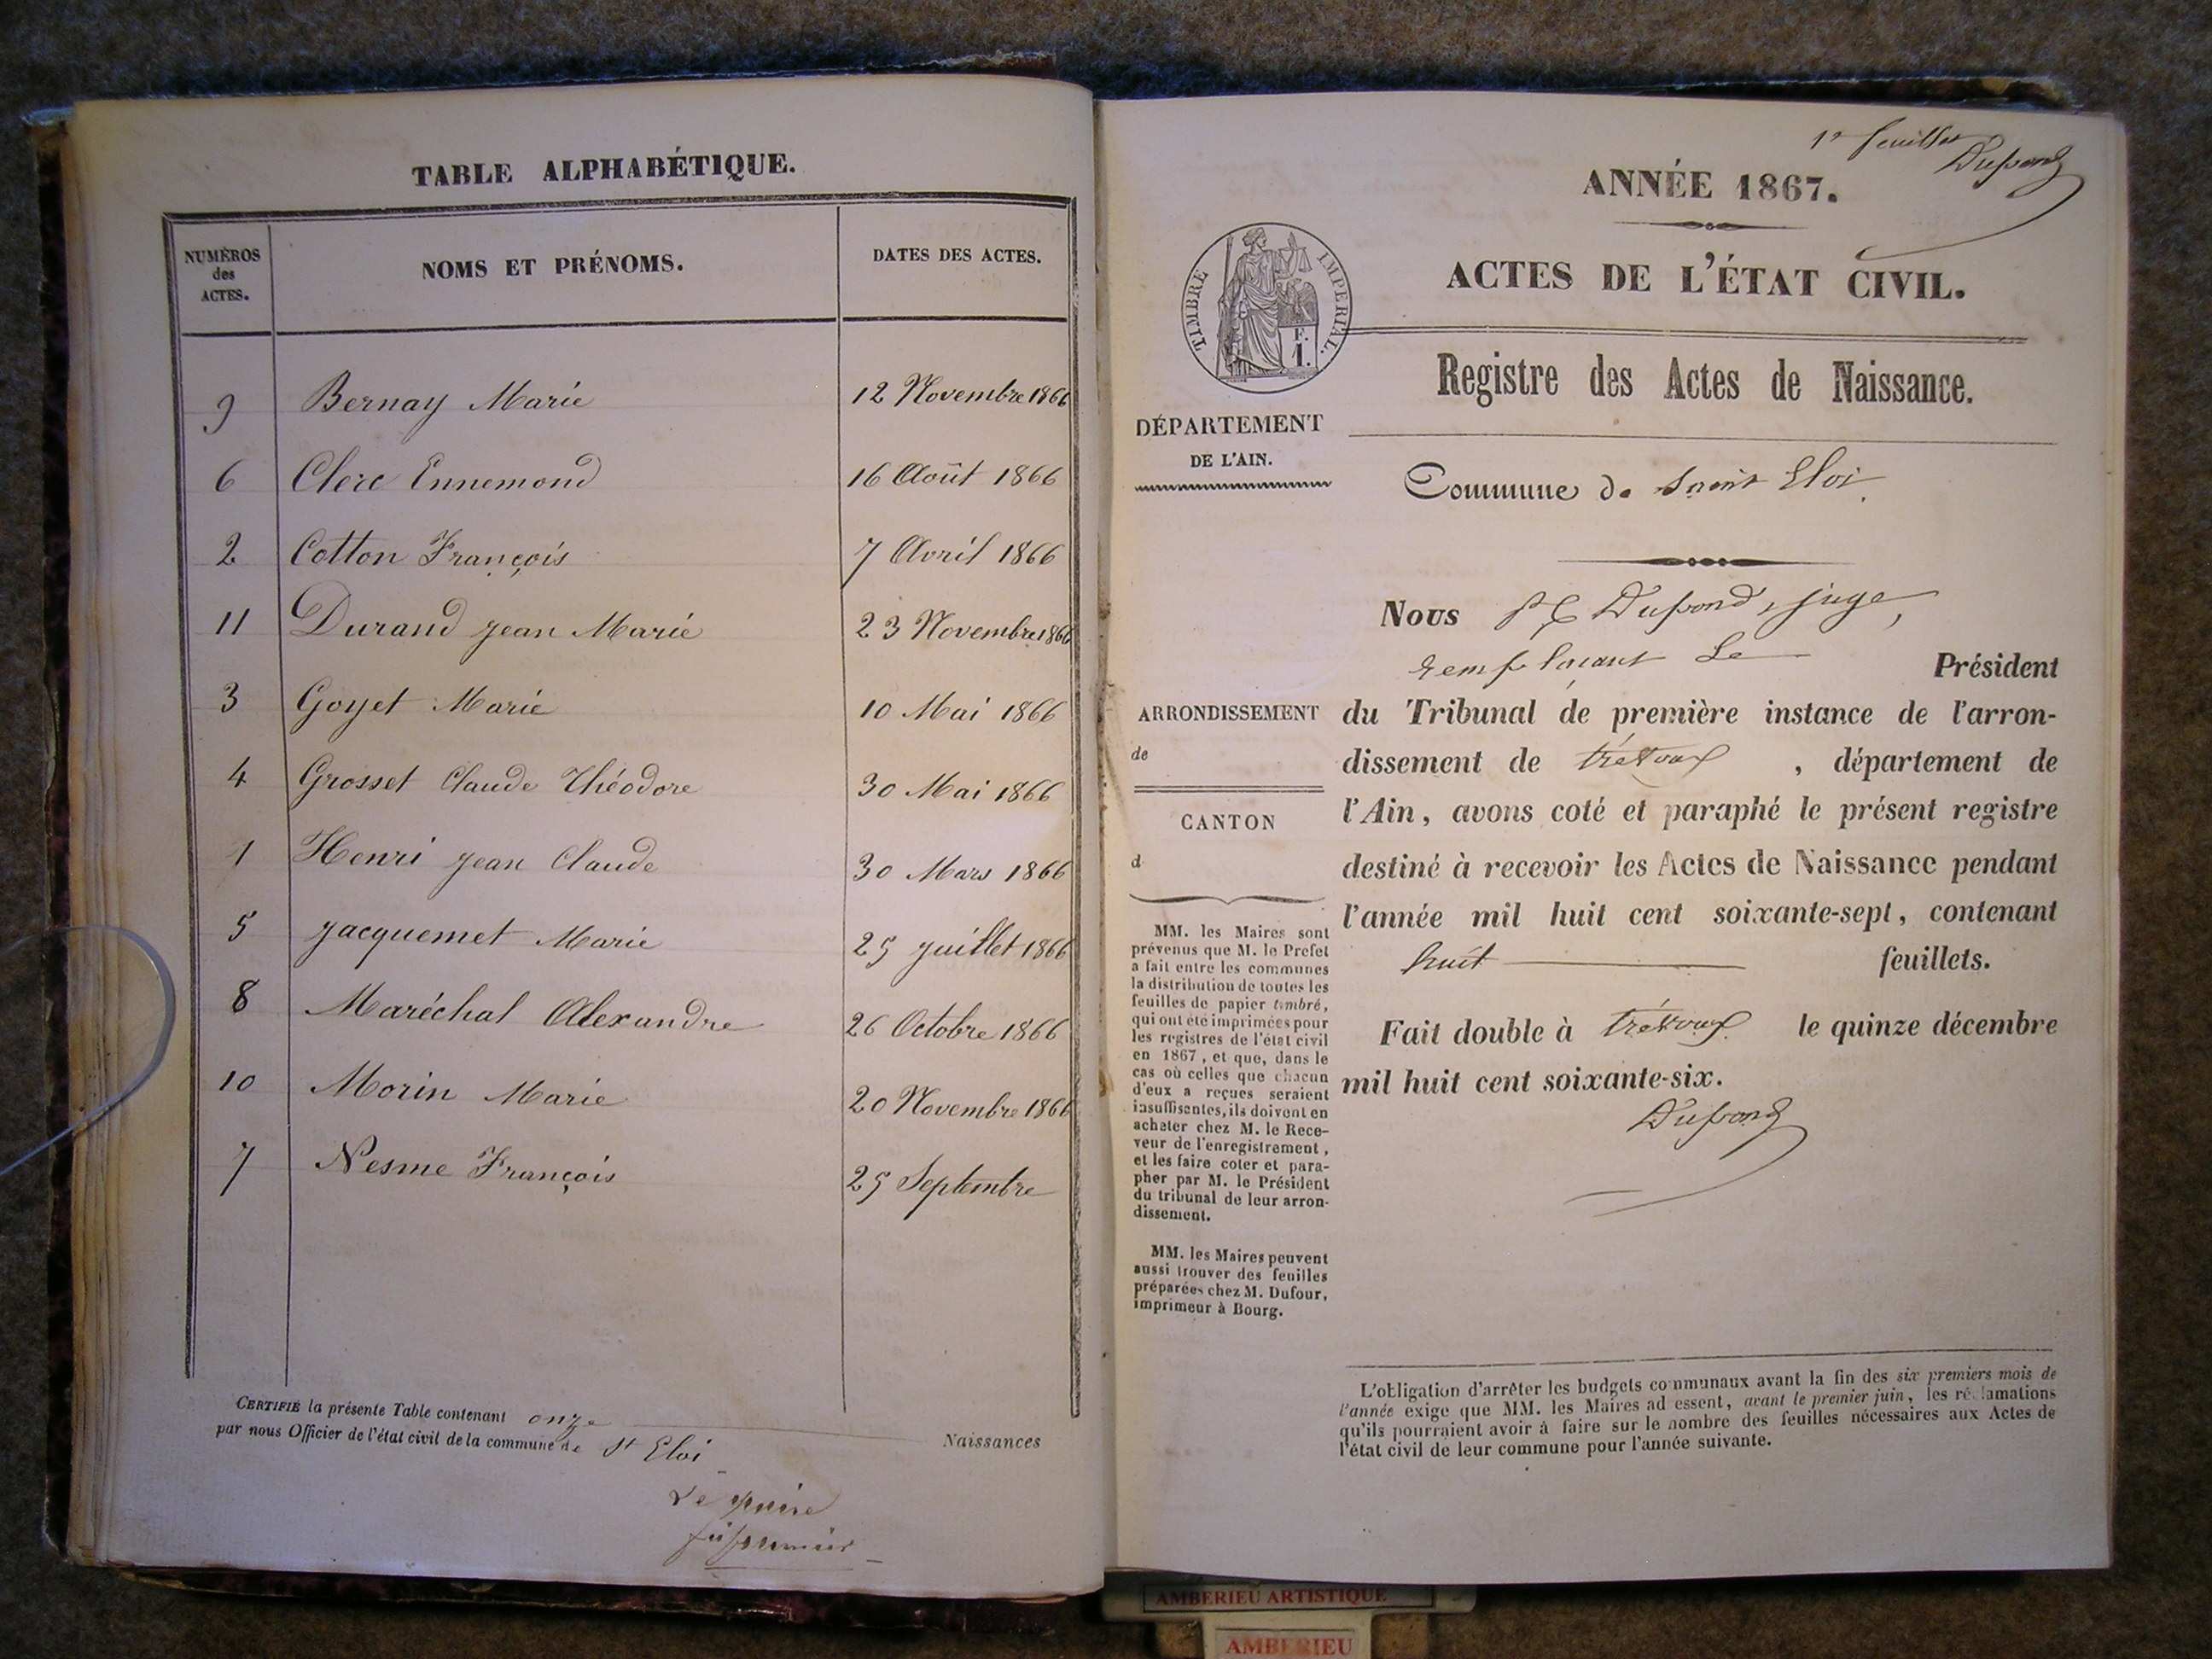 TABLE ALPHABÉTIQUE.
NUMÉROS
des
ACTES.
NOMS ET PRÉNOMS.
DATES DES ACTES.
9 Bernay Marie 12 Novembre 1866
6 Clerc Ennemond 16 Août 1866
2 Cotton François 7 Avril 1866
11 Durand jean Marie 23 Novembre 1866
3 Goyet Marie 10 Mai 1866
4 Grosset Claude Théodore 30 Mai 1866
1 Henri jean Claude 30 Mars 1866
5 jacquemet Marie 25 juillet 1866
8 Maréchal Alexandre 26 Octobre 1866
10 Morin Marie 20 Novembre 1866
7 Nesme François 25 Septembre
CERTIFIÉ la présente Table contenant onze
Naissances
par nous Officier de l'état civil de la commune de St Eloi
Le maire
1er feuillet
Dupond
ANNÉE 1867.
ACTES DE L'ÉTAT CIVIL.
TIMBRE IMPERIAL.
F.
1.
Registre des Actes de Naissance.
DÉPARTEMENT
DE L'AIN.
Commune de Saint Eloi
Nous Dupond, juge,
remplaçant Le Président
ARRONDISSEMENT
de
CANTON
d
du Tribunal de première instance de l'arron-
dissement de trévoux, département de
l'Ain, avons coté et paraphé le présent registre
destiné à recevoir les Actes de Naissance pendant
l'année mil huit cent soixante-sept, contenant
huit feuillets.
Fait double à trévoux le quinze décembre
mil huit cent soixante-six.
Dupond
MM. les Maires sont
prévenus que M. le Prefet
a fait entre les communes
la distribution de toutes les
feuilles de papier timbré,
qui ont été imprimées pour
les registres de l'état civil
en 1867, et que, dans le
cas où celles que chacun
d'eux a reçues seraient
insuffisantes, ils doivent en
acheter chez M. le Rece-
veur de l'enregistrement,
et les faire coter et para-
pher par M. le Président
du tribunal de leur arron-
dissement.
MM. les Maires peuvent
aussi trouver des feuilles
préparées chez M. Dufour,
imprimeur à Bourg.
L'obligation d'arrêter les budgets communaux avant la fin des six premiers mois de
l'année exige que MM. les Maires adressent, avant le premier juin, les réclamations
qu'ils pourraient avoir à faire sur le nombre des feuilles nécessaires aux Actes de
l'état civil de leur commune pour l'année suivante.
AMBERIEU ARTISTIQUE
AMBERIEU